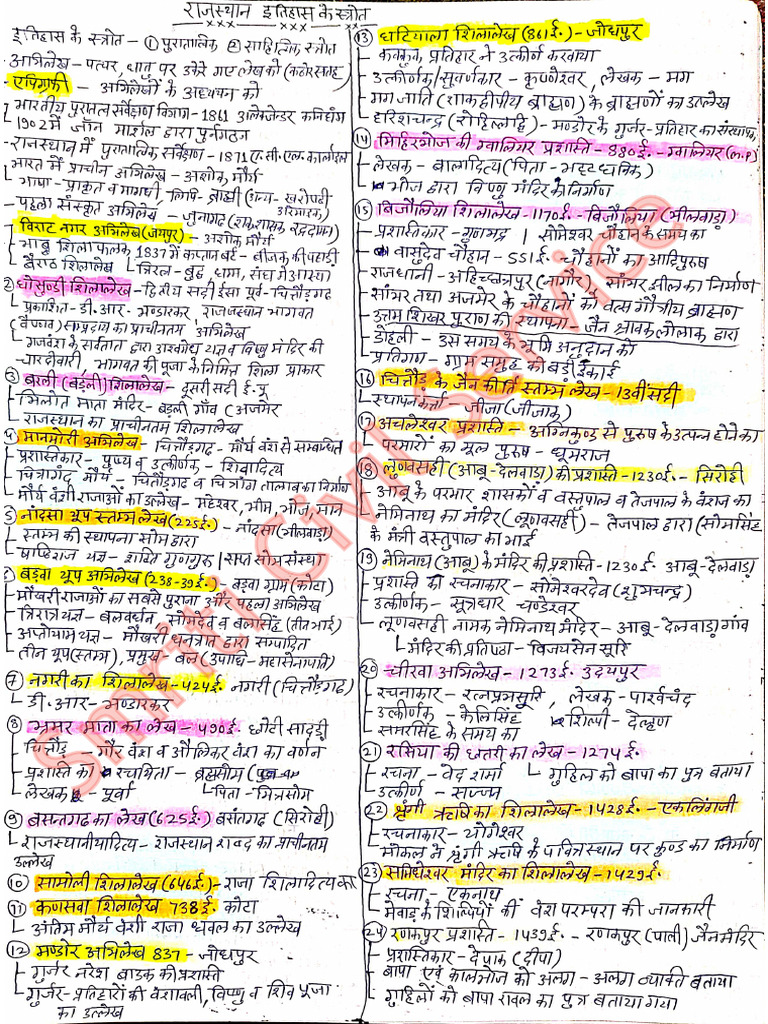 राजस्थान इतिहास के स्त्रोत
इतिहास के स्त्रोत - ① पुरातात्विक ② साहित्यिक स्त्रोत
अभिलेख - पत्थर, धातु पर उकेरे गए लेख को (कठोर सतह)
एपिग्राफी - अभिलेखों के अध्ययन को
भारतीय पुरातत्व सर्वेक्षण विभाग - 1861 अलेक्जेंडर कनिंघम
1902 में जॉन मार्शल द्वारा पुर्नगठन
राजस्थान में पुरातात्विक सर्वेक्षण - 1871 ए.सी.एल. कार्लाइल
भारत में प्राचीन अभिलेख - अशोक मौर्य
भाषा - प्राकृत व मागधी, लिपि - ब्राह्मी (अन्य - खरोष्ठी
पहला संस्कृत अभिलेख - जुनागढ़ (शक शासक रूद्रदामन)
विराट नगर अभिलेख (जयपुर) - अशोक मौर्य
भाब्रु शिलाफलक 1837 में कप्तान बर्ट - बीजक की पहाड़ी
बैराठ शिलालेख त्रिरत्न - बुद्ध, धम्म, संघ में आस्था
② घोसुण्डी शिलालेख - द्वितीय सदी ईसा पूर्व - चित्तौड़गढ़
प्रकाशित - डी.आर. भण्डारकर, राजस्थान भागवत
(वैष्णव) सम्प्रदाय का प्राचीनतम अभिलेख
गजवंश के सर्वतात द्वारा अश्वमेध यज्ञ व विष्णु मंदिर की
चारदीवारी, भागवत की पूजा के निमित्त शिला प्राकार
③ बरली (बड़ली) शिलालेख - दूसरी सदी ई.पू.
भिलोत माता मंदिर - बड़ली गाँव (अजमेर
राजस्थान का प्राचीनतम शिलालेख
④ मानमोरी अभिलेख - चित्तौड़गढ़ - मौर्य वंश से सम्बन्धित
प्रशस्तिकार - पुष्य व उत्कीर्णक - शिवादित्य
चित्रांगद मौर्य - चित्तौड़गढ़ व चित्रांग तालाब का निर्माण
मौर्य वंशी राजाओं का उल्लेख - महेश्वर, भीम, भोज, मान
5 नांदसा यूप स्तम्भ लेख (225 ई.) - नांदसा (भीलवाड़ा)
स्तम्भ की स्थापना सोम द्वारा
षष्ठिराज यज्ञ - शक्ति गुणगुरु / सप्त सोम संस्था
बड़वा यूप अभिलेख (238-39 ई.) - बड़वा ग्राम (कोटा)
मौखरी राजाओं का सबसे पुराना और पहला अभिलेख
त्रिरात्र यज्ञ - बलवर्धन, सोमदेव व बलसिंह (तीन भाई)
अप्तोयाम यज्ञ - मौखरी धनत्रात द्वारा सम्पादित
तीन यूप (स्तम्भ), प्रमुख - बल (उपाधि - महासेनापति)
⑦ नगरी का शिलालेख - 424 ई. नगरी (चित्तौड़गढ़)
डी.आर. भण्डारकर
⑧ भ्रमर माता का लेख - 490 ई. छोटी सादड़ी
चित्तौड़ - गौर वंश व औलिकर वंश का वर्णन
प्रशस्ति का रचयिता - ब्रह्मसोम
लेखक - पूर्वा पिता - मित्रसोम
⑨ बसन्तगढ़ का लेख (625 ई.) बसंतगढ़ (सिरोही)
राजस्थानीयादित्य - राजस्थान शब्द का प्राचीनतम
उल्लेख
⑩ सामोली शिलालेख (646 ई.) - राजा शिलादित्य का
⑪ कणसवा शिलालेख 738 ई. कोटा
अंतिम मौर्य वंशी राजा धवल का उल्लेख
⑫ मण्डोर अभिलेख 837 - जोधपुर
गुर्जर नरेश बाउक की प्रशस्ति
गुर्जर-प्रतिहारों की वंशावली, विष्णु व शिव पूजा
का उल्लेख
⑬ घटियाला शिलालेख (861 ई.) - जोधपुर
कक्कुक प्रतिहार ने उत्कीर्ण करवाया
उत्कीर्णक / सुवर्णकार - कृष्णेश्वर, लेखक - मग
मग जाति (शाकद्वीपीय ब्राह्मण) के ब्राह्मणों का उल्लेख
हरिशचन्द्र (रोहिल्लद्धि) - मण्डोर के गुर्जर-प्रतिहार का संस्थापक
⑭ मिहिरभोज की ग्वालियर प्रशस्ति - 880 ई. - ग्वालियर (M.P)
लेखक - बालादित्य (पिता - भट्टधन्निक)
भोज द्वारा विष्णु मंदिर का निर्माण
15 बिजौलिया शिलालेख - 1170 ई. - बिजौलिया (भीलवाड़ा)
प्रशस्तिकार - गुणभद्र | सोमेश्वर चौहान के समय का
वासुदेव चौहान - 551 ई. चौहानों का आदिपुरुष
राजधानी - अहिच्छत्रपुर (नागौर), सांभर झील का निर्माण
सांभर तथा अजमेर के चौहानों को वत्स गौत्रीय ब्राह्मण
उत्तम शिखर पुराण की स्थापना - जैन श्रावक लोलाक द्वारा
डोहली - उस समय के भूमि अनुदान को
प्रतिगण - ग्राम समूह की बड़ी ईकाई
⑯ चित्तौड़ के जैन कीर्ति स्तम्भ लेख - 13वीं सदी
स्थापनकर्त्ता - जीजा (जीजाक)
⑰ अचलेश्वर प्रशस्ति - अग्निकुण्ड से पुरुष के उत्पन्न होने का
परमारों का मूल पुरुष - धूमराज
⑱ लुणवसही (आबू-देलवाड़ा) की प्रशस्ति - 1230 ई. - सिरोही
आबू के परमार शासकों व वस्तुपाल व तेजपाल के वंशज का
नेमिनाथ का मंदिर (लूणवसही) - तेजपाल द्वारा (सोमसिंह
के मंत्री वस्तुपाल का भाई
19 नेमिनाथ (आबू) के मंदिर की प्रशस्ति - 1230 ई. आबू-देलवाड़ा
प्रशस्ति का रचनाकार - सोमेश्वरदेव (शुभचन्द्र)
उत्कीर्णक - सूत्रधार चण्डेश्वर
लूणवसही नामक नेमिनाथ मंदिर - आबू-देलवाड़ा गाँव
मंदिर की प्रतिष्ठा - विजयसेन सूरि
⑳ चीरवा अभिलेख - 1273 ई. उदयपुर
रचनाकार - रत्नप्रभसूरि, लेखक - पार्श्वचंद
उत्कीर्णक - केलिसिंह शिल्पी - देल्हण
समरसिंह के समय का
21 रसिया की छतरी का लेख - 1274 ई.
रचना - वेद शर्मा गुहिल को बापा का पुत्र बताया
उत्कीर्ण - सज्जन
22 श्रृंगी ऋषि का शिलालेख - 1428 ई. - एकलिंगजी
रचनाकार - योगेश्वर
मोकल ने श्रृंगी ऋषि के पवित्र स्थान पर कुण्ड का निर्माण
23 समिधेश्वर मंदिर का शिलालेख - 1429 ई.
रचना - एकनाथ
मेवाड़ के शिल्पियों की वंश परम्परा की जानकारी
24 रणकपुर प्रशस्ति - 1439 ई. - रणकपुर (पाली) जैन मंदिर
प्रशस्तिकार - देपाक (दीपा)
बापा एवं कालभोज को अलग-अलग व्यक्ति बताया
गुहिलों को बापा रावल का पुत्र बताया गया
Smriti Civil Service